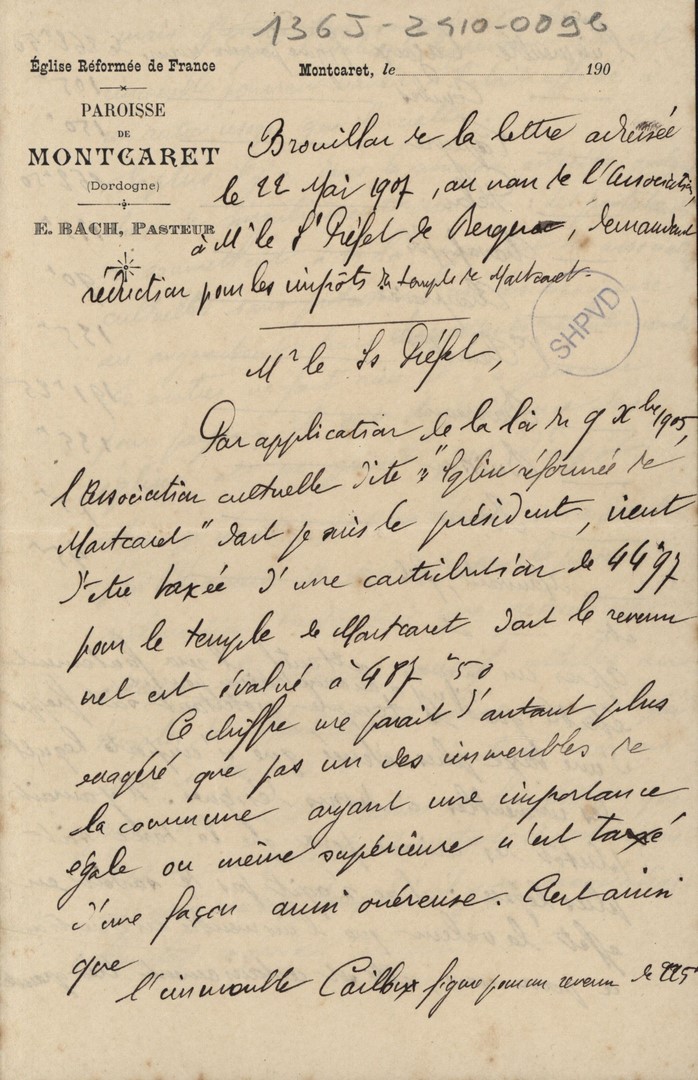 136J-2410-0096
Église Réformée de France
Montcaret, le 190
PAROISSE
DE
MONTCARET
(Dordogne)
E. BACH, PASTEUR
Brouillon de la lettre adressée
le 22 Mai 1907, au nom de l'Association,
à Mr le S/Préfet de Bergerac, demandant
réduction pour les impôts du temple de Montcaret.
SHPVD
Mr le Ss Préfet,
Par application de la loi du 9 Xbre 1905,
l'Association cultuelle dite "Eglise réformée de
Montcaret" dont je suis le président, vient
d'être taxée d'une contribution de 44f97
pour le temple de Montcaret dont le revenu
net est évalué à 487f50
Ce chiffre me parait d'autant plus
exagéré que pas un des immeubles de
la commune ayant une importance
égale ou même supérieure n'est taxé
d'une façon aussi onéreuse. C'est ainsi
que
l'immeuble figure pour un revenu de 225f